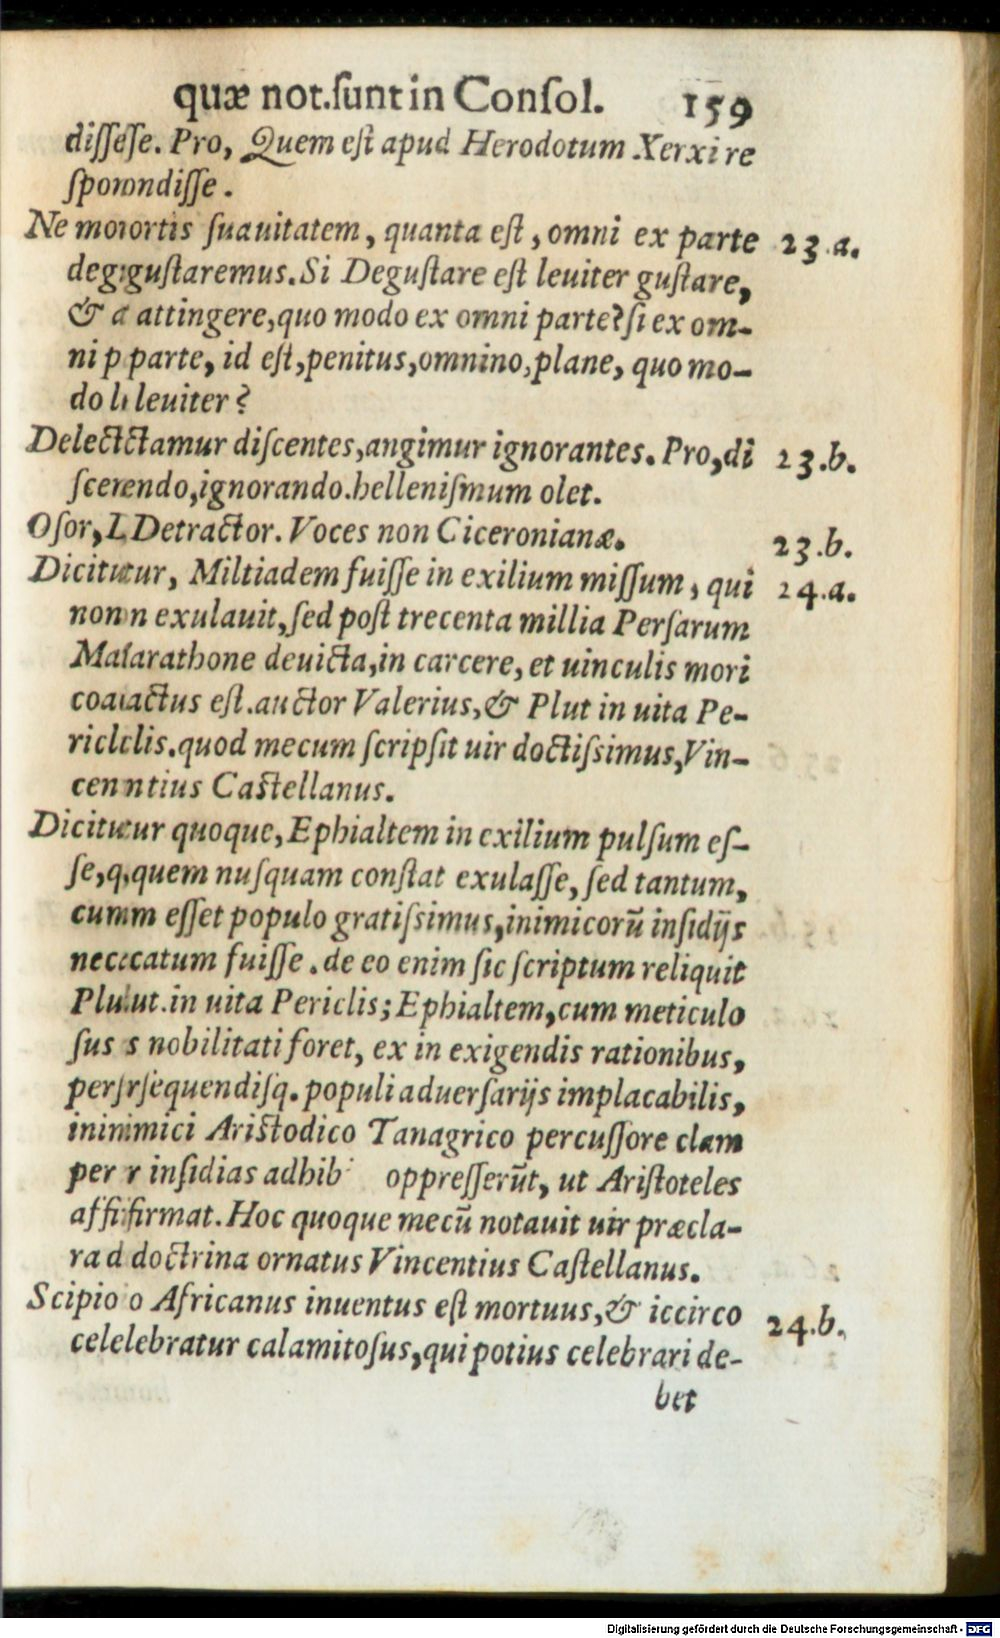 quæ not.ſunt in Conſol. 159
diſſeſe. Pro, Quem eſt apud Herodotum Xerxi re
ſpondiſſe.
Ne mortis ſuauitatem, quanta eſt, omni ex parte 23.a.
deguſtaremus. Si Deguſtare eſt leuiter guſtare,
& attingere, quo modo ex omni parte? ſi ex om-
ni parte, id eſt, penitus, omnino, plane, quo mo-
do leuiter?
Delectamur diſcentes, angimur ignorantes. Pro, di 23.b.
ſcendo, ignorando. helleniſmum olet.
Oſor, Detractor. Voces non Ciceronianæ. 23.b.
Dicitur, Miltiadem fuiſſe in exilium miſſum, qui 24.a.
non exulauit, ſed poſt trecenta millia Perſarum
Marathone deuicta, in carcere, et uinculis mori
coactus eſt. auctor Valerius, & Plut in uita Pe-
riclis. quod mecum ſcripſit uir doctiſsimus, Vin-
centius Caſtellanus.
Dicitur quoque, Ephialtem in exilium pulſum eſ-
ſe, quem nuſquam conſtat exulaſſe, ſed tantum,
cum eſſet populo gratiſsimus, inimicorũ inſidijs
necatum fuiſſe. de eo enim ſic ſcriptum reliquit
Plut. in uita Periclis; Ephialtem, cum meticulo
ſus nobilitati foret, ex in exigendis rationibus,
perſequendiſq. populi aduerſarijs implacabilis,
inimici Ariſtodico Tanagrico percuſſore clam
per inſidias adhib oppreſſerũt, ut Ariſtoteles
affirmat. Hoc quoque mecũ notauit uir præcla-
ra doctrina ornatus Vincentius Caſtellanus.
Scipio Africanus inuentus eſt mortuus, & iccirco 24.b.
celebratur calamitoſus, qui potius celebrari de-
bet
Digitalisierung gefördert durch die Deutsche Forschungsgemeinschaft - DFG